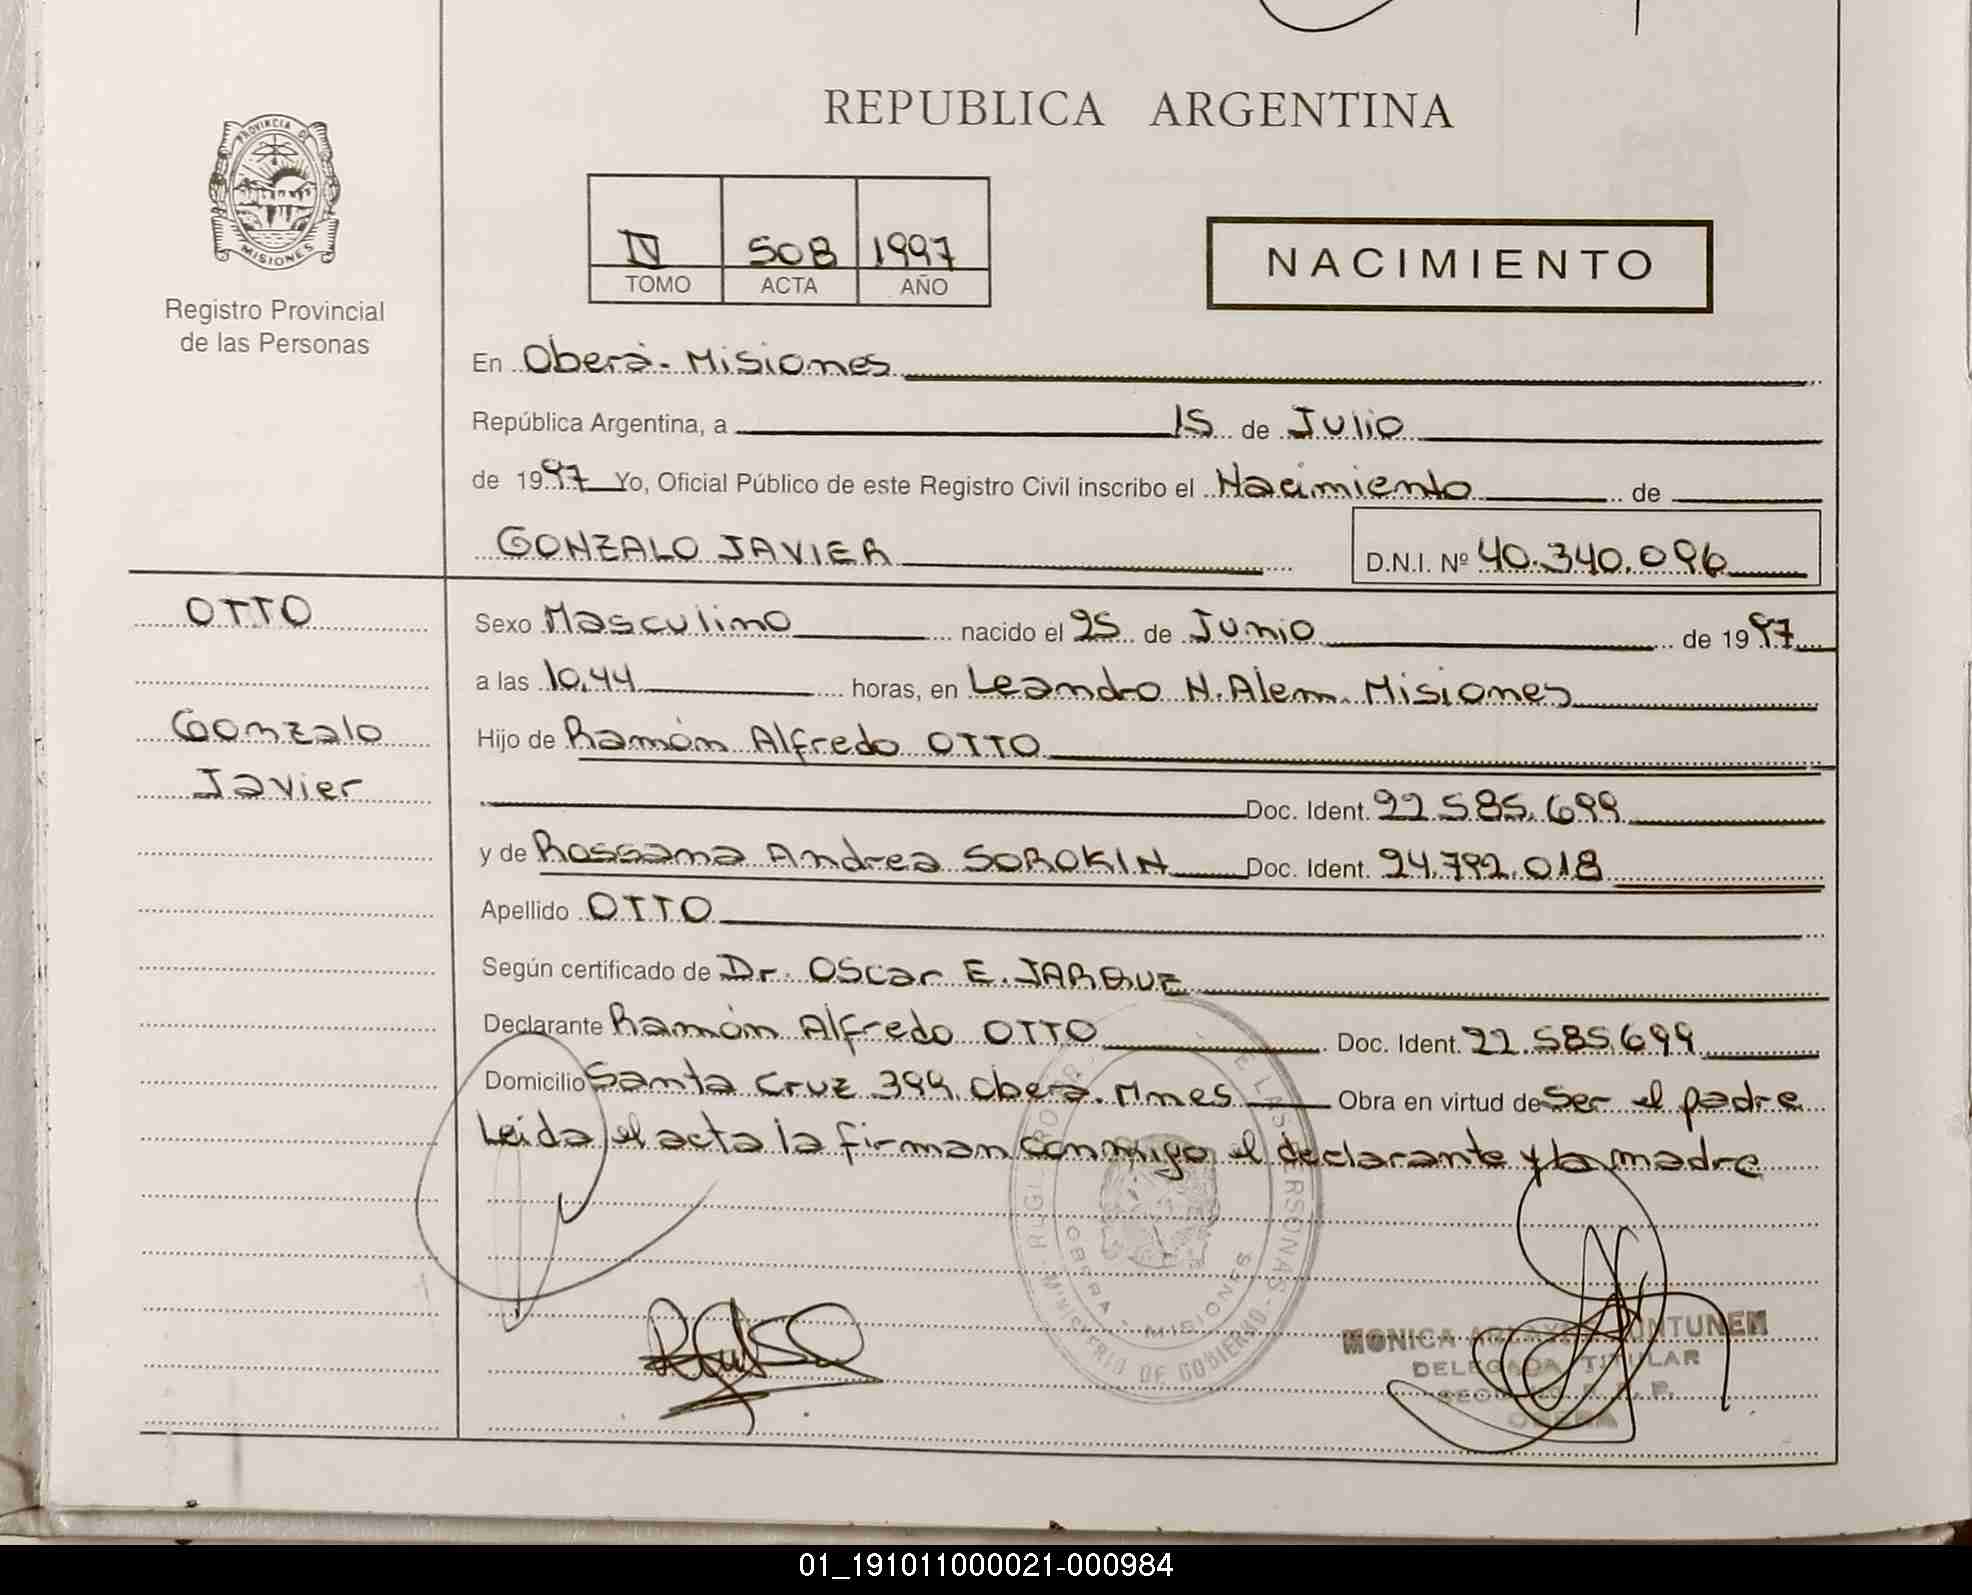 REPUBLICA ARGENTINA
PROVINCIA DE
MISIONES
Registro Provincial
de las Personas
IV 508 1997
TOMO ACTA AÑO
NACIMIENTO
En Oberá - Misiones
República Argentina, a 15 de Julio
de 1997 Yo, Oficial Público de este Registro Civil inscribo el Nacimiento de
GONZALO JAVIER D.N.I. Nº 40.340.096
OTTO
Gonzalo
Javier
Sexo Masculino nacido el 25 de Junio de 1997
a las 10,44 horas, en Leandro N. Alem. Misiones
Hijo de Ramón Alfredo OTTO
Doc. Ident. 22.585.699
y de Rossana Andrea SOROKIN Doc. Ident. 24.792.018
Apellido OTTO
Según certificado de Dr. Oscar E. JARQUE
Declarante Ramón Alfredo OTTO Doc. Ident. 22.585.699
Domicilio Santa Cruz 399. Oberá. Mnes Obra en virtud de Ser el padre
Leida el acta la firman conmigo el declarante y la madre
OBERA - MISIONES
MINISTERIO DE GOBIERNO
MONICA
DELEGADA TITULAR
OBERA
01_191011000021-000984